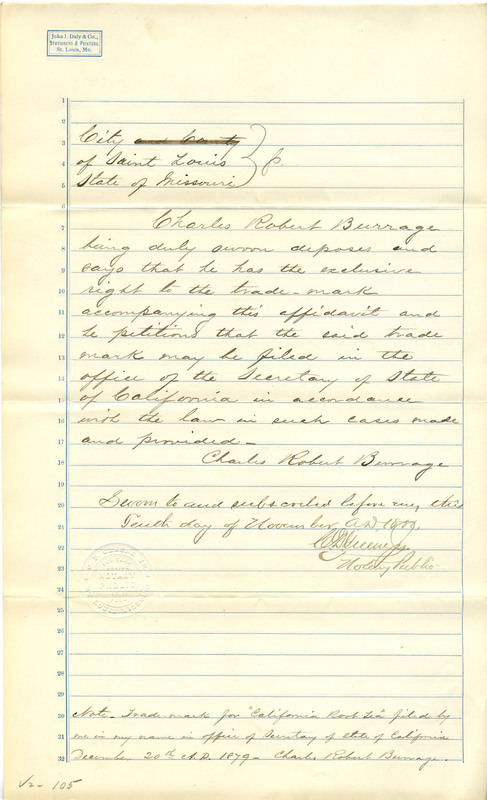 John J. Daly & Co.,
STATIONERS & PRINTERS,
St. Louis, Mo.
1
2
City and County
3
of Saint Louis
4
State of Missouri
5
6
Charles Robert Burrage
7
being duly sworn deposes and
8
says that he has the exclusive
9
right to the trade-mark
10
accompanying this affidavit and
11
he petitions that the said trade
12
mark may be filed in the
13
office of the Secretary of State
14
of California in accordance
15
with the law in such cases made
16
and provided-
17
Charles Robert Burrage
18
19
Sworn to and subscribed before me, this
20
Tenth day of November A.D.
21
22
Notary Public
23
24
25
26
27
28
29
Note- Trade-mark for "California Root Tea" filed by
30
me in my name in office of Secretary of State of California
31
December 20th A.D. 1879- Charles Robert Burrage.
32
V2- 105